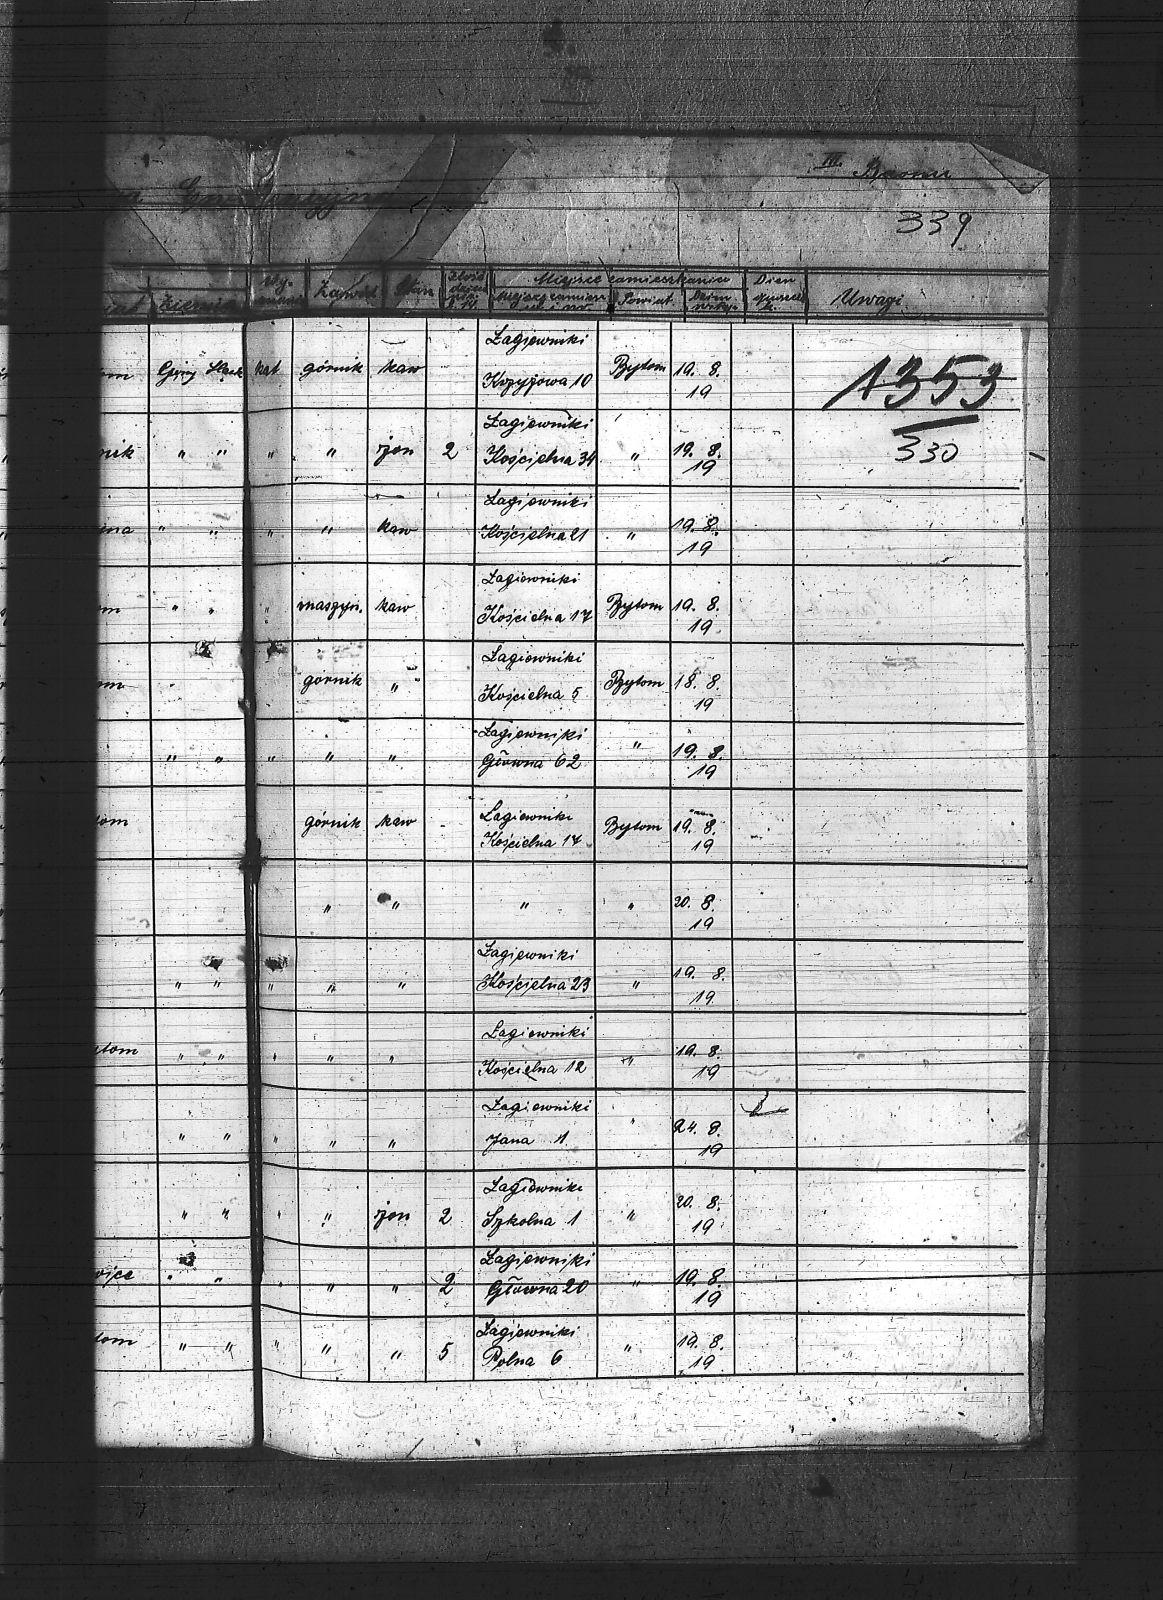 III. Baonu
339
Miejsce zamieszkania Dzien
Ziemia Zawód Stan Powiat Uwagi
Łagiewniki
om Górny Sląsk kat górnik kaw Krzyżowa 10 Bytom 19. 8.
19
1353
330
Łagiewniki
nik " " " " żon 2 Kościelna 34 " 19. 8.
19
Łagiewniki
ina " " " " kaw Kościelna 21 " 19. 8.
19
Łagiewniki
om " " " maszyn. kaw Kościelna 17 Bytom 19. 8.
19
Łagiewniki
om górnik " Kościelna 5 Bytom 18. 8.
19
Łagiewniki
" " " " " Główna 62 " 19. 8.
19
Łagiewniki
tom górnik kaw Kościelna 17 Bytom 19. 8.
19
" " " " 20. 8.
19
Łagiewniki
" " " " " Kościelna 23 " 19. 8.
19
Łagiewniki
ytom " " " " " Kościelna 12 " 19. 8.
19
Łagiewniki
" " " " " Jana 1 " 24. 8.
19
Łagiewniki
" " " " żon 2 Szkolna 1 " 20. 8.
19
Łagiewniki
wice " " " " " 2 Główna 20 " 19. 8.
19
Łagiewniki
tom " " " " " 5 Polna 6 " 19. 8.
19